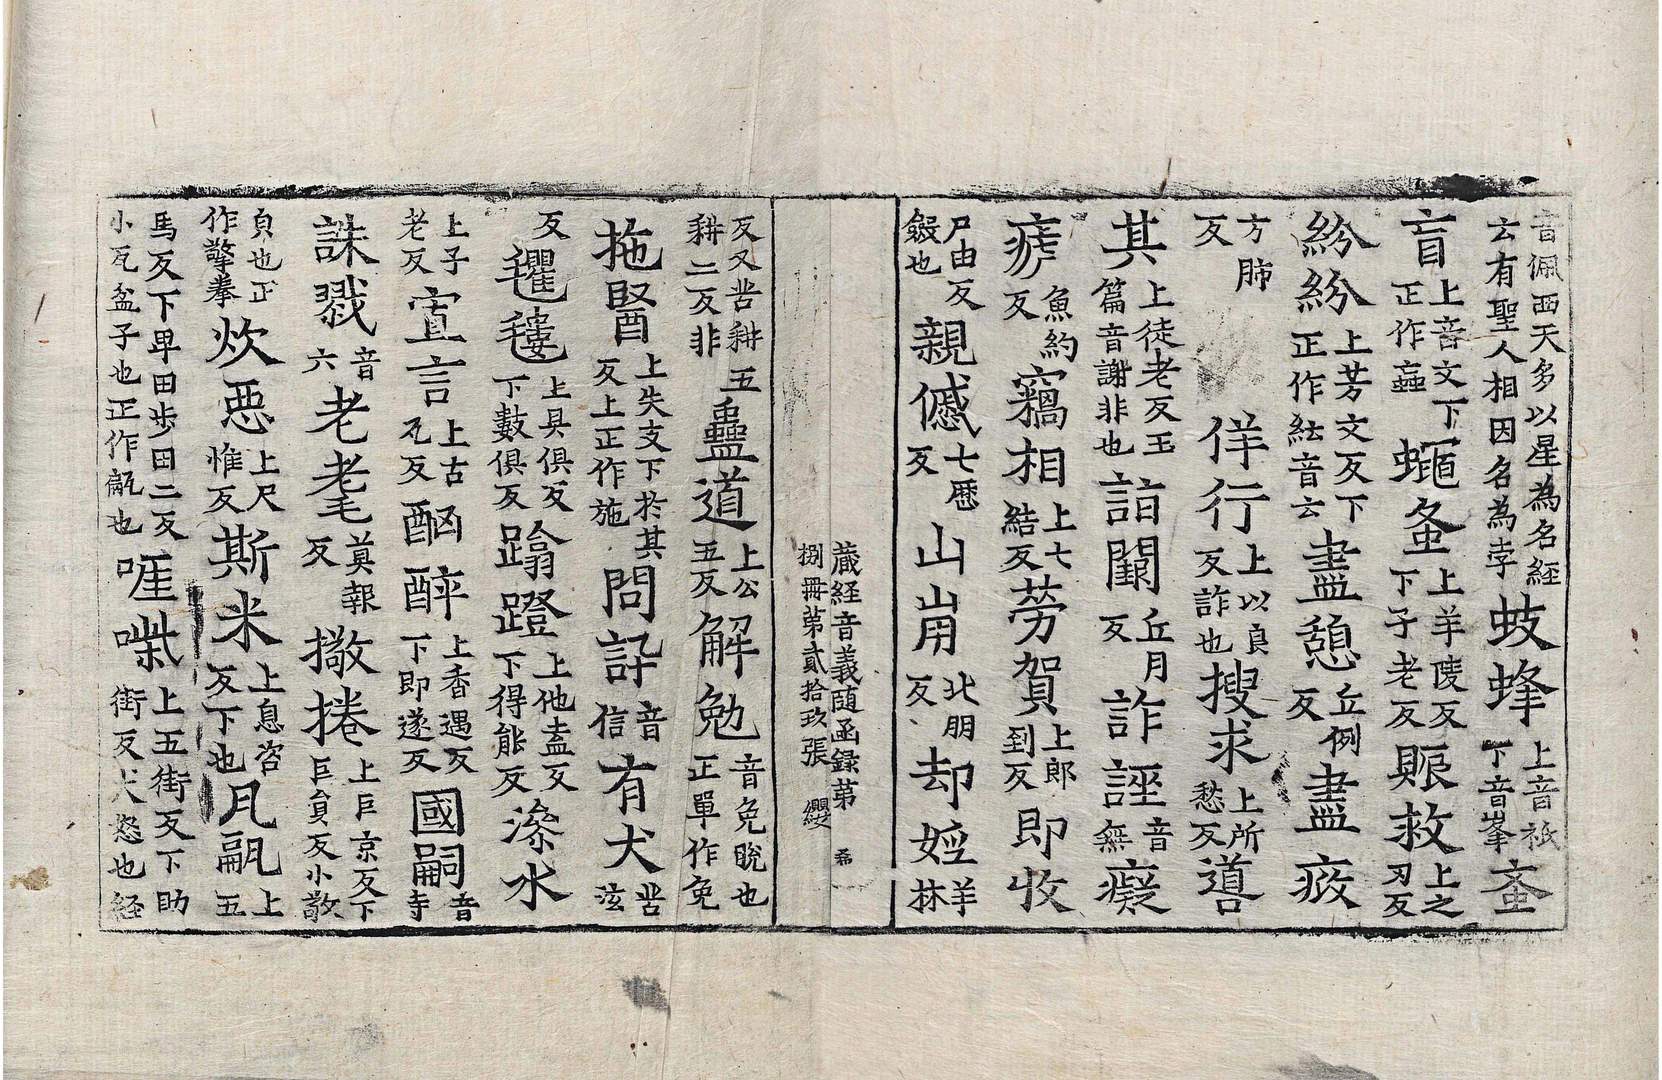 音佩西天多以星為名經
云有聖人相因名為孛蚑蜂上音祇下音峯蚉
盲上音文下正作蝱蠅蚤上羊陵反下子老反賑救上之刃反
紛紛上芳文反下正作紜音云盡憩丘例反盡疲
方肺反佯行上以良反詐也搜求上所愁反道
其上徒老反玉篇音謝非也詣闕丘月反詐誣音無癡
瘧魚約反竊相上七結反勞賀上郎到反即收
尸由反殺也親慽七歷反山崩北朋反却婬羊林
藏経音義隨函錄第
捌冊第貳拾玖張 纓
反又苦耕五耕二反非蠱道上公五反解勉音免脫也正單作免
拖醫上失支下於其反上正作施問訊音信有犬苦泫
反氍毹上具俱反下數俱反蹹蹬上他盍反下得能反滲水
上子老反寡言上古瓦反酗醉上香遇反下即遂反國嗣音寺
誅戮音六老耄莫報反撒捲上巨京反下巨負反小散
負也正作擎拳炊惡上尺惟反斯米上息咨反下也凡瓵上五
馬反下早田歩田二反小瓦盆子也正作甂也啀喍上五街反下助街反犬怒也経